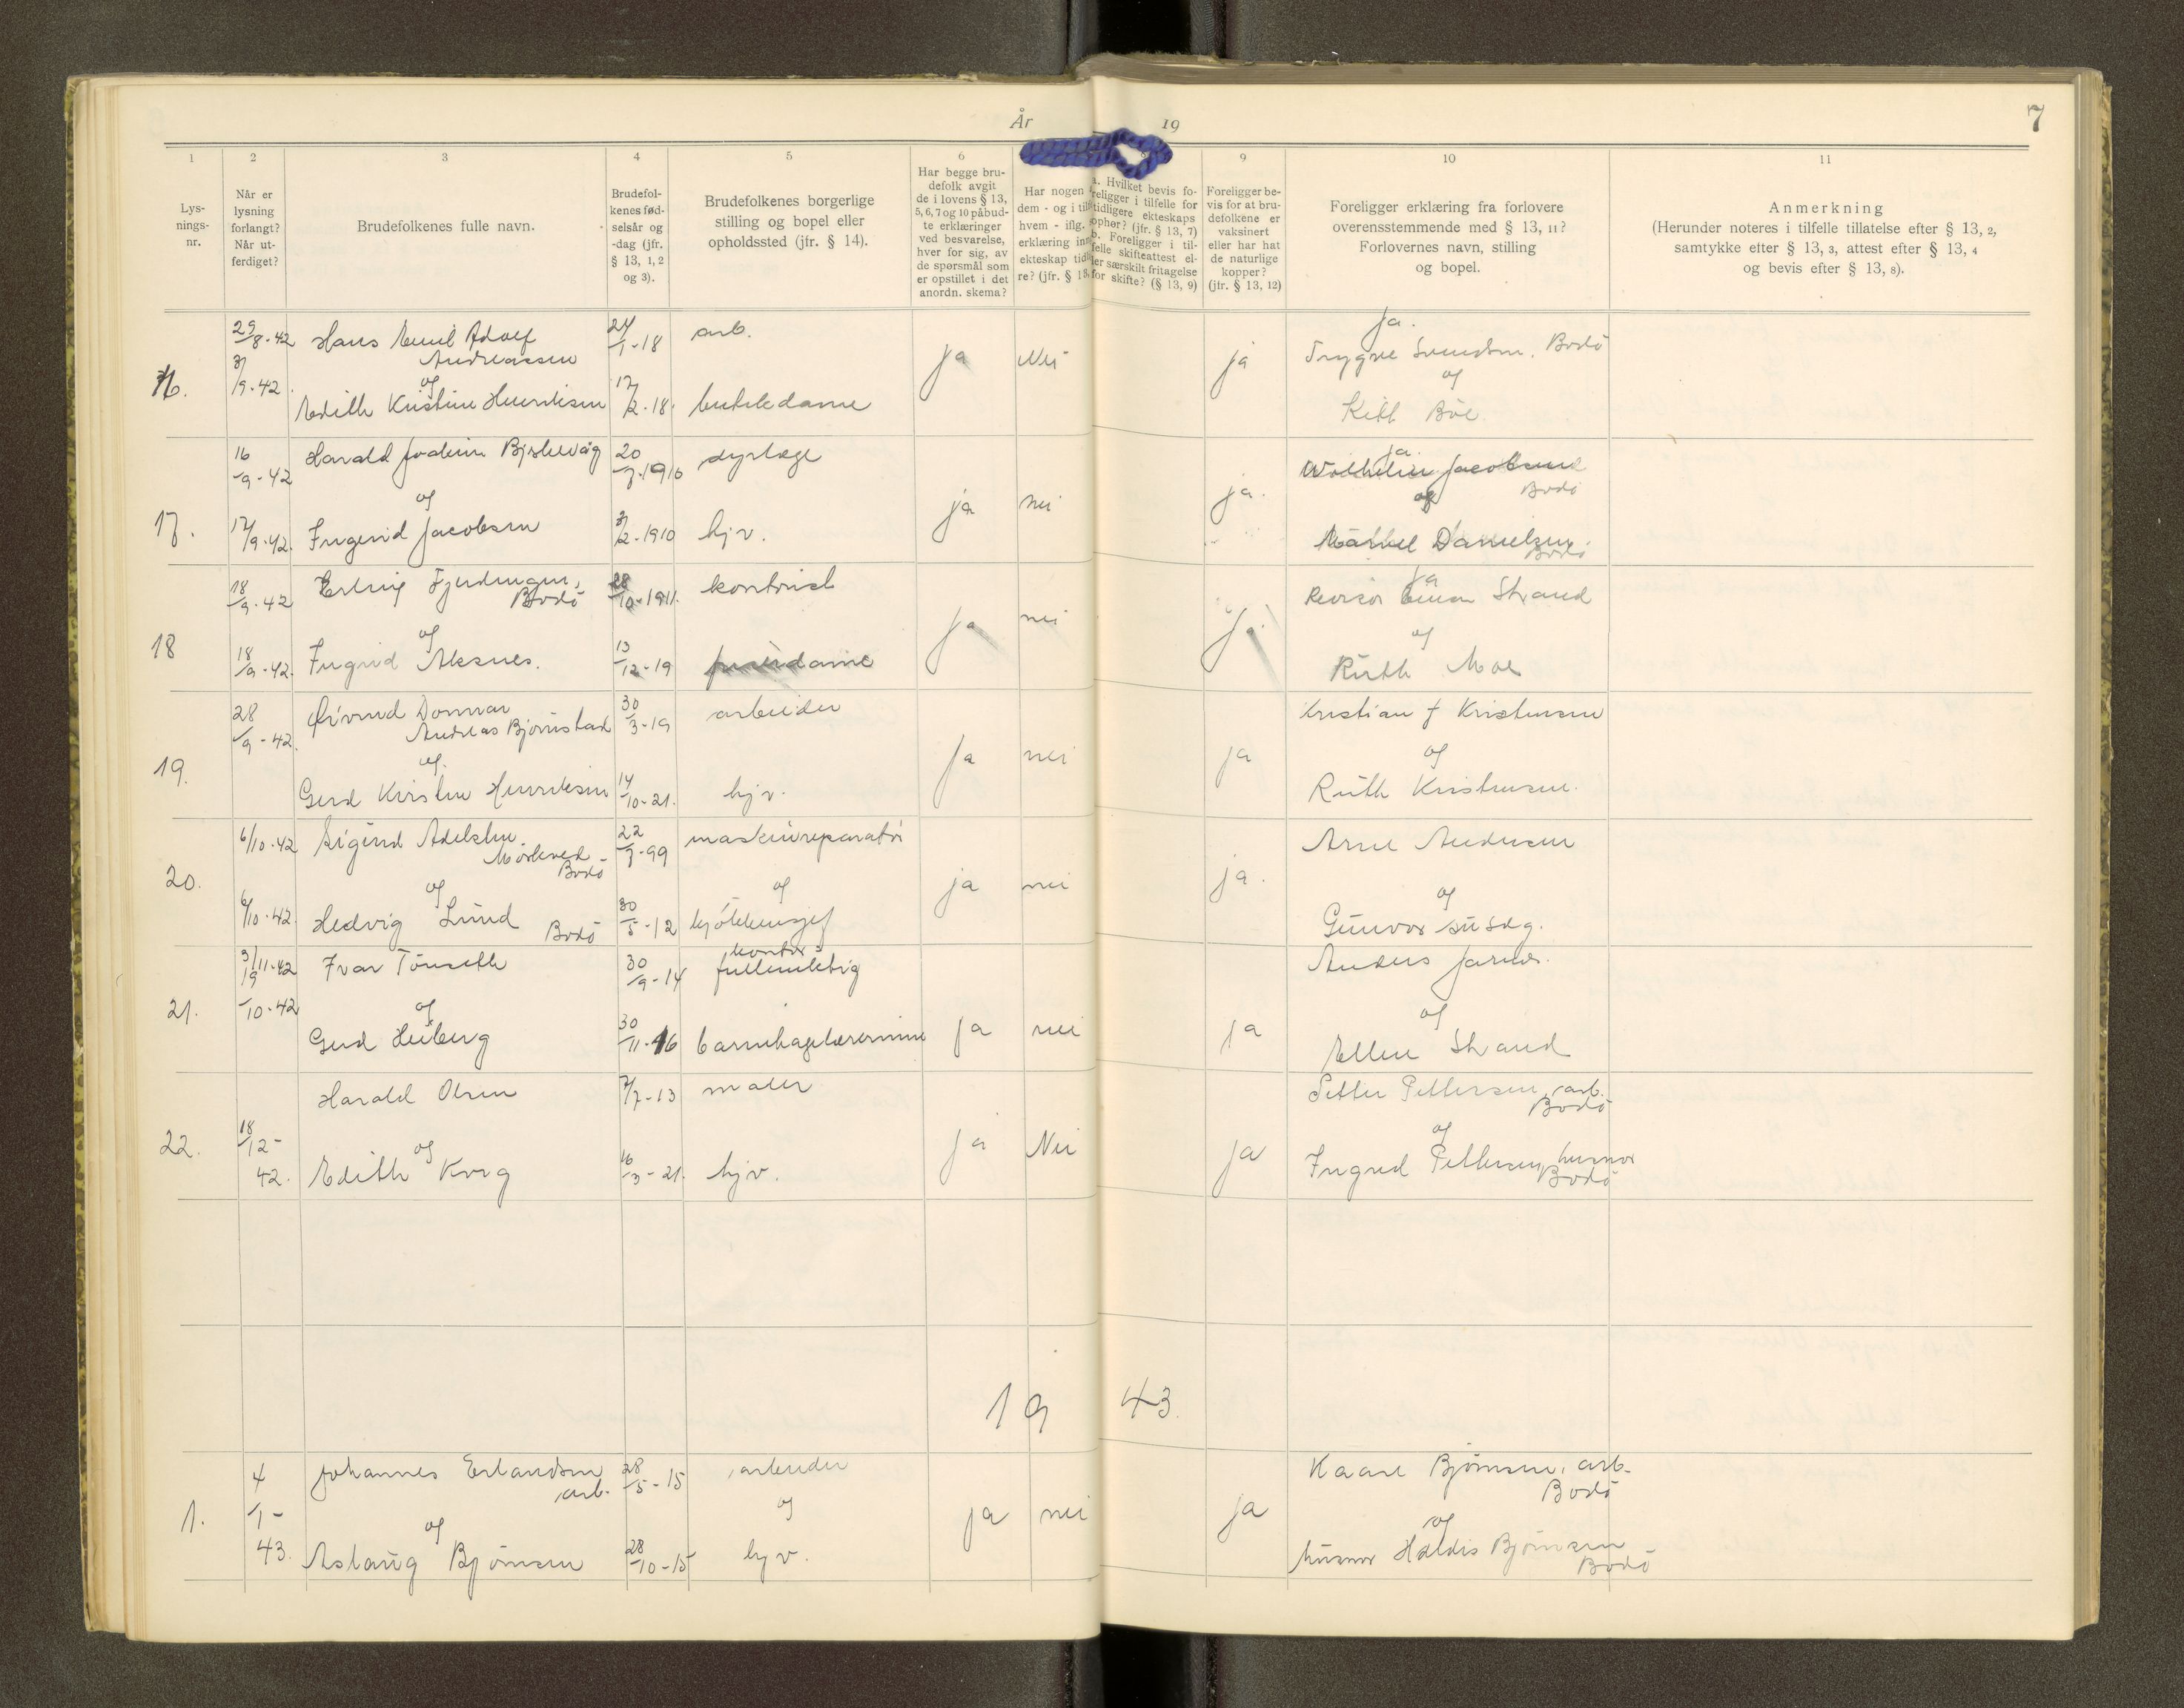 År 19
7
1 2 3 4 5 6 9 10 11
Lys-
nings-
nr.
Når er
lysning
forlangt?
Når ut-
ferdiget?
Brudefolkenes fulle navn.
Brudefol-
kenes fød-
selsår og
-dag (jfr.
§ 13, 1, 2
og 3).
Brudefolkenes borgerlige
stilling og bopel eller
opholdssted (jfr. § 14).
Har begge bru-
defolk avgit
de i lovens § 13,
5, 6, 7 og 10 påbud-
te erklæringer
ved besvarelse,
hver for sig, av
de spørsmål som
er opstillet i det
anordn. skema?
Har nogen
dem - og i til
hvem - iflg.
erklæring inn
ekteskap tid
re? (jfr. § 13,
a. Hvilket bevis fo-
religger i tilfelle for
tidligere ekteskaps
ophør? (jfr. § 13, 7)
b. Foreligger i til-
felle skifteattest el-
ler særskilt fritagelse
for skifte? (§ 13, 9)
Foreligger be-
vis for at bru-
defolkene er
vaksinert
eller har hat
de naturlige
kopper?
(jfr. § 13, 12)
Foreligger erklæring fra forlovere
overensstemmende med § 13, 11?
Forlovernes navn, stilling
og bopel.
Anmerkning
(Herunder noteres i tilfelle tillatelse efter § 13, 2,
samtykke efter § 13, 3, attest efter § 13, 4
og bevis efter § 13, 8).
16.
29/8-42
3/9-42.
Hans Emil Adolf
Andreassen
og
Edith Kristine Henriksen
24/1-18
17/2-18.
arb.
butikdame
ja
Nei
ja
Ja.
Trygve Svendsen. Bodö
og
Kitt Böe
17.
16/9-42
17/9-42.
Harald Joakim
og
Ingerid Jacobsen
20/7-1910
3/2-1910
dyrlæge
hjv.
ja
nei
ja.
ja.
Wilhelm Jacobsen
Bodö
og
Danielsen
Bodö
18
18/9-42
18/9-42.
Erling Fjerdingen,
Bodö
og
Ingrid Aksnes.
28/10-1911.
13/12-19
kontorist
ja
nei
ja.
ja
Revisor Einar Strand
og
Ruth Moe
19.
28/9-42.
Øivind Donvar
Andreas Bjørnstad
og
Gerd Kirstin Henriksen
30/3-19
14/10-21.
arbeider
hjv.
ja
nei
ja
Kristian J Kristensen
og
Ruth Kristensen.
20.
6/10-42
6/10-42.
Sigurd Adelsten
Mörkved
Bodö
og
Hedvig Lund
Bodö
22/7-99
30/5-12
maskinreparatör
og
kjökkensjef
ja
nei
ja.
Arne Andersen
og
Gunvor Susæg.
21.
3/11-42
19/10-42
Ivar Tönseth
og
Gerd Heiberg
30/9-14
30/11-16
kontor
fullmektig
barnehagelærerinne
ja
nei
ja
Anders Jarnes.
og
Ellen Strand
22.
18/12-
42.
Harald Olsen
og
Edith Kvig
7/7-13
16/3-21.
maler
hjv.
ja
Nei
ja
Petter Pettersen, arb.
Bodö
og
Ingrid Pettersen, husmor
Bodö
1943.
1.
4/1-
43.
Johannes Erlandsen
arb.
og
Aslaug Bjørnsen
28/5-15
28/10-15
arbeider
og
hjv.
ja
nei
ja
Kaare Bjørnsen, arb.
Bodö
og
husmor Haldis Bjørnsen
Bodö